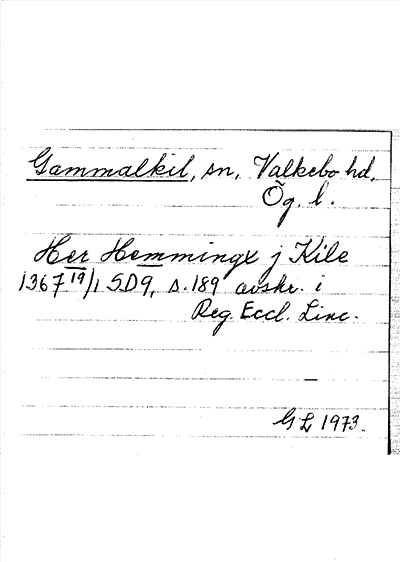 Gammalkil, sn, Valkebo hd,
Ög. l.
Her Hemmingx j Kile
1367 19/1 SD9, s. 189 avskr. i
Reg. Eccl. Linc.
G L 1973.